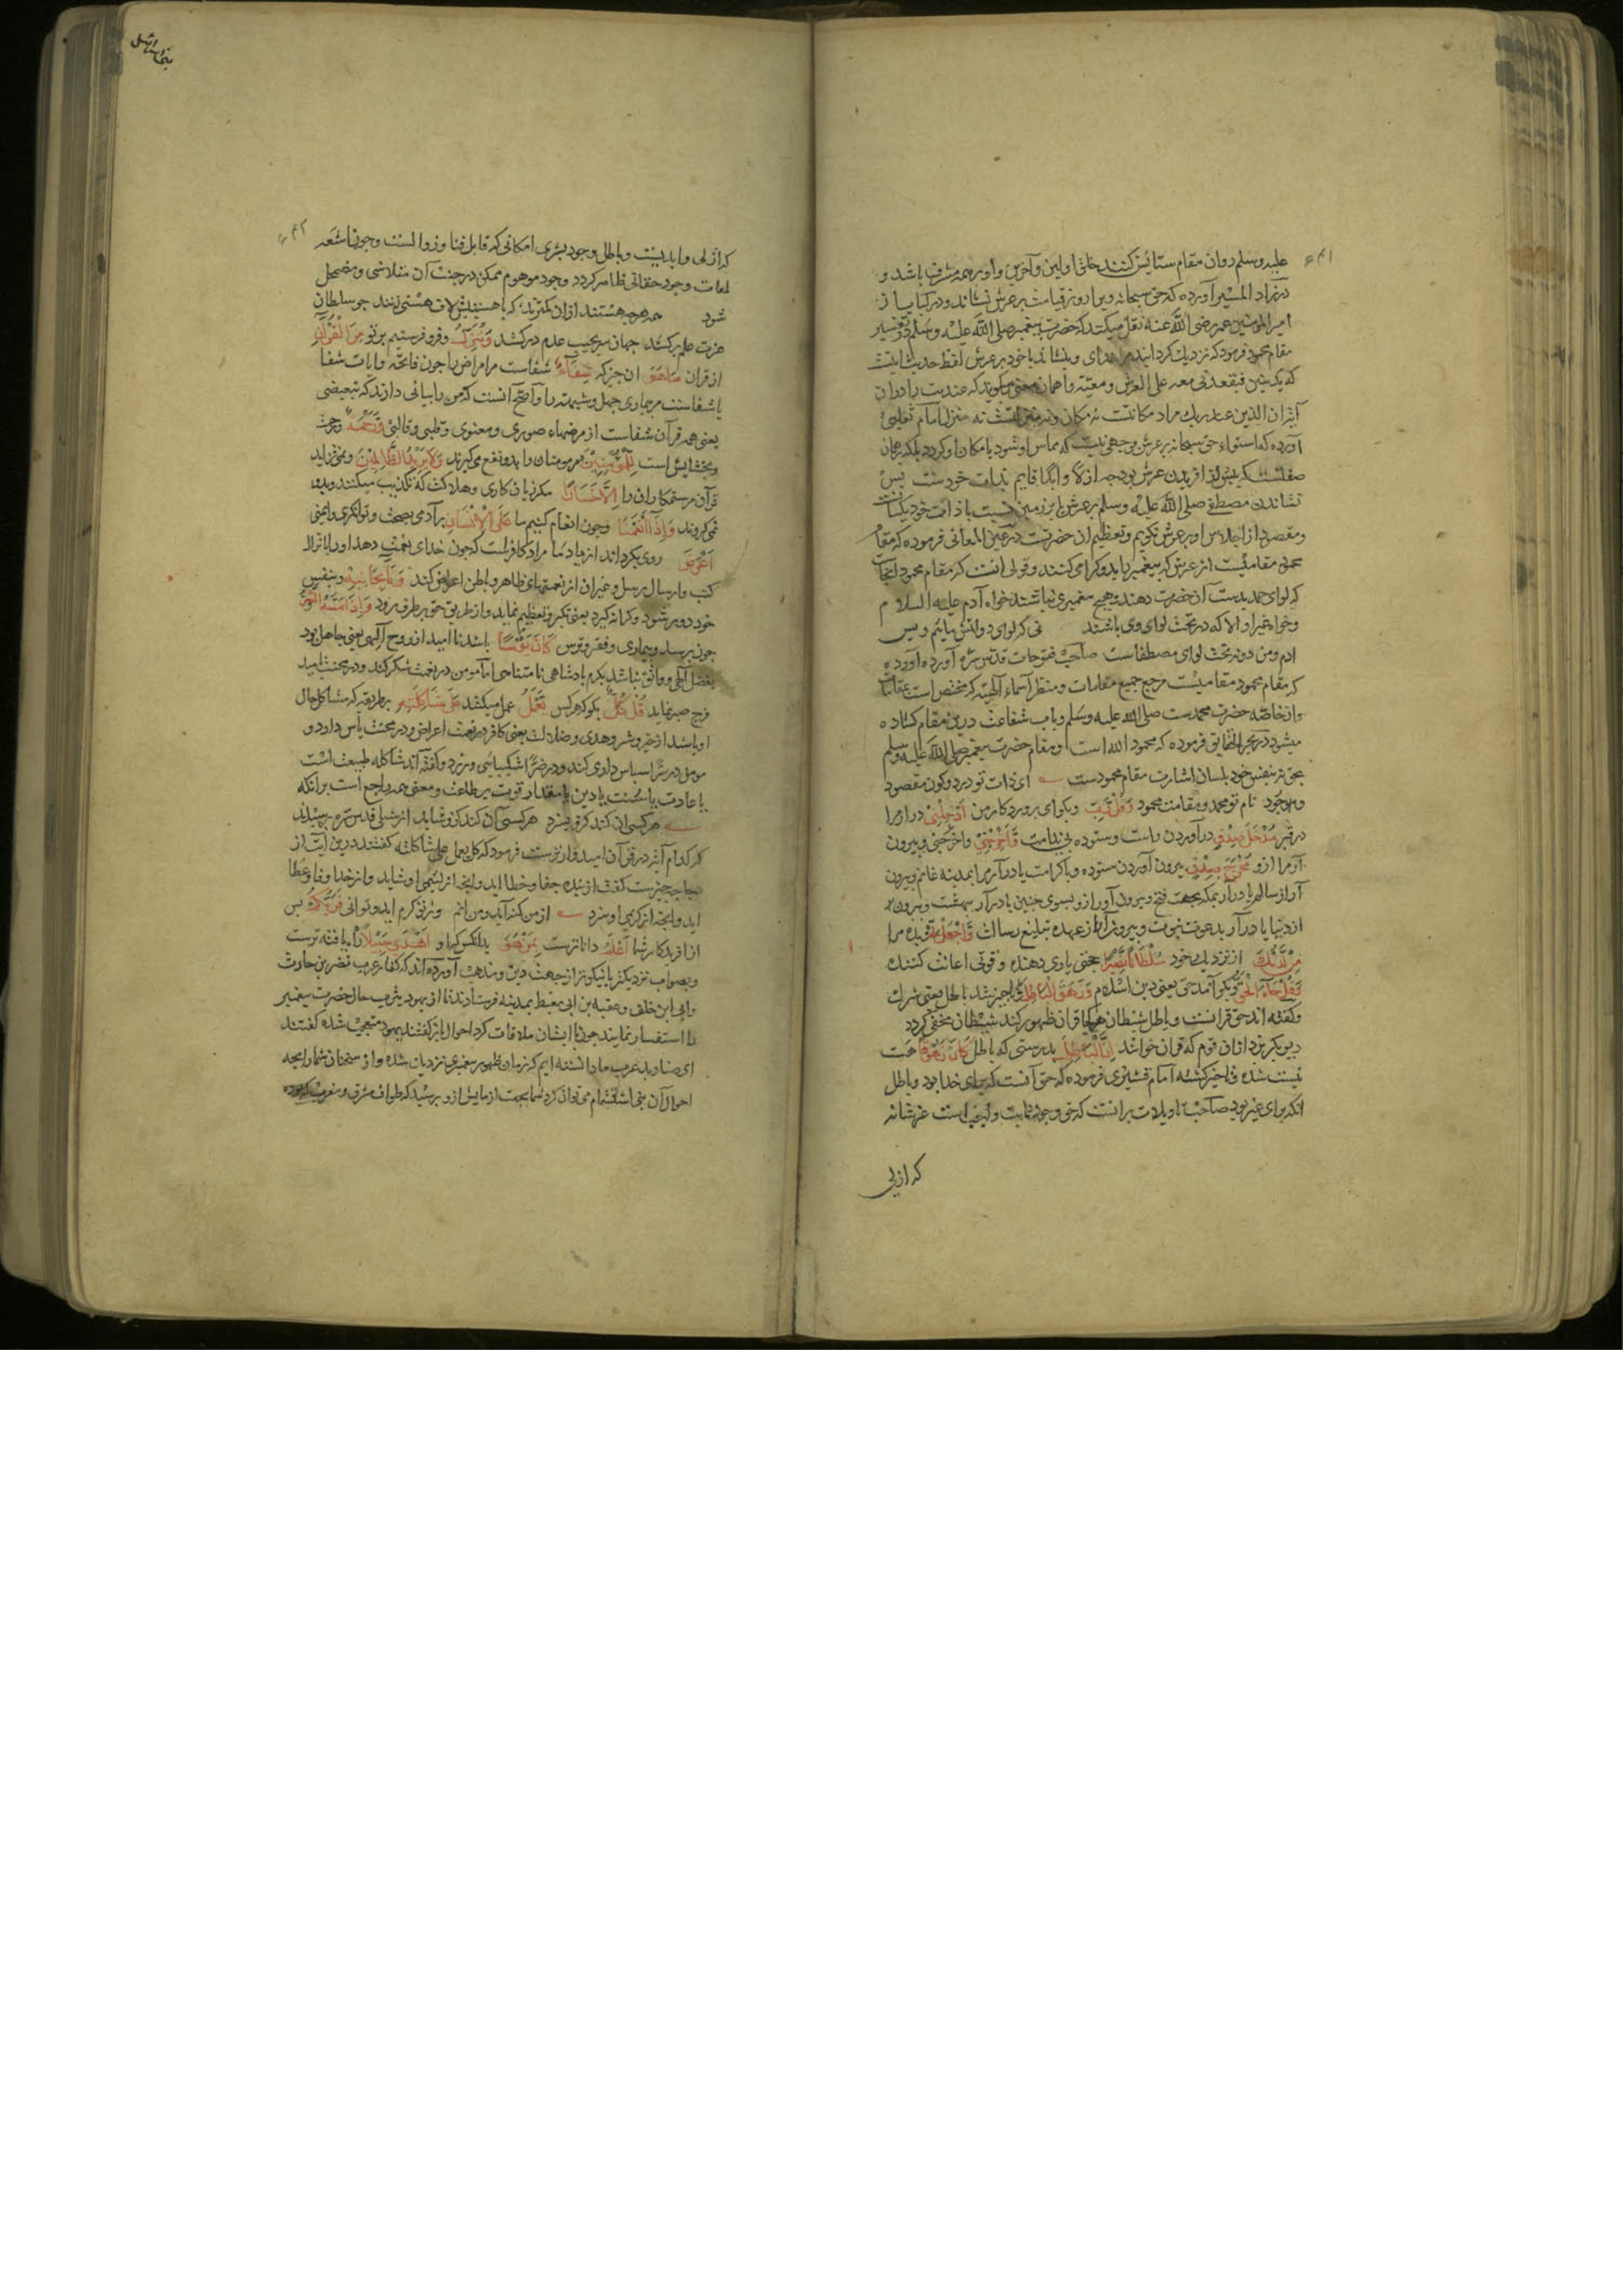 ۴۴۱
علیه وسلم دران مقام ستایش کنند خلق اولین وآخرین واو بر همه مشرف باشد و
در زاد المسیر آورده که حق سبحانه ویرا روز قیامت بر عرش نشاند ودر کتابها از
امیر المومنین عمر رضی الله عنه نقل میکند که حضرت پیغمبر صلی الله علیه وسلم در تفسیر
مقام محمود فرمود که نزدیک کرداند مرا خدای وبنشاند با خود بر عرش لفظ حدیث اینست
که یدنینی فیقعدنی معه علی العرش ومعیته را همان معنی میکویند که عندیت را در ان
آیه ان الذین عند ربک مراد مکانت نه مکان ومنزلت نه منزل امام ثعلبی
آورده که استواء حق سبحانه بر عرش بوجهی نیست که مماس او شود یا مکان او کردد بلکه بر همان
صفتست که پیش از افریدن عرش بود چه ازلا وابدا قایم بذات خودست پس
نشاندن مصطفی صلی الله علیه وسلم بر عرش یا بر زمین نسبت با ذات خود یکسانست
ومقصود از اجلاس او بر عرش تکریم وتعظیم ان حضرتست در عین المعانی فرموده که مقام
محمود مقامیست از عرش که پیغمبر باید وکرامی کنند وقولی انست که مقام محمود آنجاست
که لوای حمد بدست آن حضرت دهند وهیچ پیغمبری نباشد خواه آدم علیه السلام
وخواه غیر او الا که در تحت لوای وی باشند نی که لوای دولتش بپایم وبس
ادم ومن دونه تحت لوای مصطفاست صاحب فتوحات قدس سره آورده
که مقام محمود مقامیست مرجع جمیع مقامات ومنظر اسماء الهیه که مختص است بمقامات
وان خاصه حضرت محمدست صلی الله علیه وسلم وباب شفاعت درین مقام کشاده
میشود در بحر الحقایق فرموده که محمود الله است ومقام حضرت پیغمبر صلی الله علیه وسلم
بحق نه بنفس خود بلسان اشارت مقام محمودست ای ذات تو در دو کون مقصود
وموجود نام تو محمد ومقامت محمود وَقُلْ رَبِّ وبکو ای پروردکار من اَدْخِلْنِی در ارمرا
در قبر مُدْخَلَ صِدْقٍ در آوردن راست وستوده بی ندامت وَاَخْرِجْنِی وبیرون
آر مرا ازو مُخْرَجَ صِدْقٍ بیرون آوردن ستوده وبا کرامت یا در آر مرا بمدینه غانم وبیرون
آر از سالم یا در آر بمکه بجهت فتح وبیرون آور ازو بسوی حنین یا در آر ببهشت وبیرون
از دنیا یا در آر بدعوت نبوت وبیرون آر از عهده تبلیغ رسالت وَاجْعَلْ لِی وبده مرا
مِنْ لَدُنْکَ از نزدیک خود سُلْطَانًا نَصِیرًا حجتی یاری دهنده وقوتی اعانت کننده
وَقُلْ جَاءَ الْحَقُّ وبکو آمد حق یعنی دین اسلام وَزَهَقَ الْبَاطِلُ وناچیز شد باطل یعنی شرک
وکفته اند حق قرانست وباطل شیطان هرکجا قران ظهور کند شیطان مختفی کردد
دیو بکریزد از ان قوم که قران خوانند اِنَّ الْبَاطِلَ بدرستی که باطل کَانَ زَهُوقًا هست
نیست شده وناچیز کشته امام قشیری فرموده که حق آنست که برای خدا بود وباطل
انکه برای غیر بود صاحب تاویلات برانست که حق وجود ثابت واجبی است عز شانه
که ازلی
بنی اسرائیل
۴۴۲
که ازلی وابدیست وباطل وجود بشری امکانی که قابل فنا وزوالست وچون اشعه
لمعات وجود حقانی ظاهر کردد وجود موهوم ممکن در جنب آن متلاشی ومضمحل
شود همه هرچه هستند ازان کمترند که با هستیش لاف هستی زنند چو سلطان
عزت علم برکشد جهان سر بجیب عدم درکشد وَنُنَزِّلُ وفرو فرستیم بر تو مِنَ الْقُرْآنِ
از قران مَا هُوَ ان چیز که شِفَآءٌ شفاست مر امراض را چون فاتحه وایات شفا
یا شفاست مر بیماری جهل وشبهه را واصح آنست که من را بیانی دارند که تبعیضی
یعنی همه قرآن شفاست از مرضهاء صوری ومعنوی وقلبی وقالبی وَرَحْمَةٌ ورحمت
وبخشایش است لِلْمُؤْمِنِینَ مر مومنان را بدو نفع میکیرند وَلَا یَزِیدُ الظَّالِمِینَ ونمی افزاید
قرآن مر ستمکاران را اِلَّا خَسَارًا مکر زیان کاری وهلاکت که تکذیب میکنند وبدو
نمی کروند وَاِذَا اَنْعَمْنَا وچون انعام کنیم ما عَلَی الْاِنْسَانِ بر آدمی بصحت وتوانکری وایمنی
اَعْرَضَ روی بکرداند از یاد ما مراد کافرانست که چون خدای نعمت دهد اورا بانزال
کتب وارسال رسل وغیر ان از نعمتهای ظاهر وباطن اعراض کند وَنَاٰ بِجَانِبِهِ وبنفس
خود دور شود وکرانه کیرد یعنی تکبر وتعظیم نماید واز طریق حق بر طرف رود وَاِذَا مَسَّهُ الشَّرُّ
چون برسد وبیماری وفقر وترس کَانَ یَئُوسًا باشد نا امید از روح الهی یعنی جاهل بود
بفضل الهی وواثق نباشد بکرم پادشاهی نامتناهی اما مومن در نعمت شکر کند ودر محنت امید
فرج صبر نماید قُلْ کُلٌّ بکو که هرکس یَعْمَلُ عمل میکند عَلَی شَاکِلَتِهِ بر طریقه که مشاکل حال
او باشد از خیر وشر وهدی وضلالت یعنی کافر در نعمت اعراض ودر محنت یاس دارد و
مومن در سرّا سپاس داری کند ودر ضرّا شکیبایی ورزد وکفته اند شاکله طبیعت است
یا عادت یا سنت یا دین یا مقدار قوت بر طاعت ومعنی همه راجع است برانکه
هر کسی ان کند کزو سزد هر کسی آن کند کزو شاید از شبلی قدس سره پرسیدند
که کدام آیه در قرآن امیدوارترست فرمود که کل یعمل علی شاکلته کفتند درین آیت از
رجا چه چیزست کفت از بنده جفا وخطا اید وانچه از لئیمی او شاید واز خدا وفا وعطا
اید وانچه از کریمی او سزد از من کنه آید ومن انم وز تو کرم اید وتو انی فَرَبُّکُمْ پس
افریدکار شما اَعْلَمُ داناترست بِمَنْ هُوَ بدانکس که او اَهْدَی سَبِیلًا راه یافته ترست
وبصواب نزدیکتر یا نیکوتر از جهت دین ومذهب آورده اند که کفار عرب نضر بن حارث
وابی ابن خلف وعقبه بن ابی معیط بمدینه فرستادند تا از یهود یثرب حال حضرت پیغمبر
را استفسار نمایند چون با ایشان ملاقات کرد احوال باز کفتند یهود متعجب شده کفتند
ای صنادید عرب ما دانسته ایم که زمان ظهور پیغمبری نزدیک شده واز سخنان شما رایحه
احوال آن نبی استشمام می توان کرد شما بجهت ازمایش ازو پرسید که طواف مشرق ومغرب که بوده